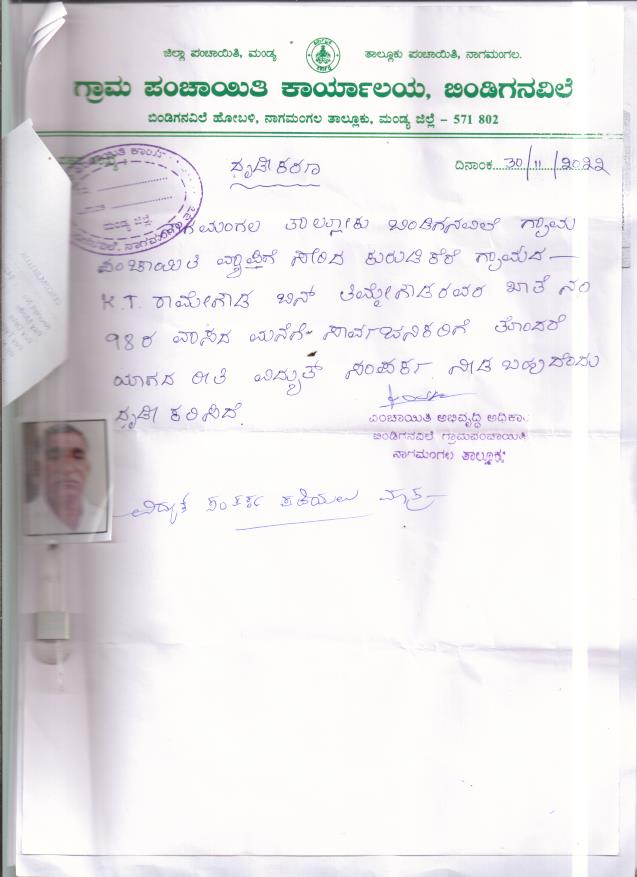 ಜಿಲ್ಲಾ ಪಂಚಾಯಿತಿ, ಮಂಡ್ಯ ತಾಲ್ಲೂಕು ಪಂಚಾಯಿತಿ, ನಾಗಮಂಗಲ.
ಗ್ರಾಮ ಪಂಚಾಯಿತಿ ಕಾರ್ಯಾಲಯ, ಬಿಂಡಿಗನವಿಲೆ
ಬಿಂಡಿಗನವಿಲೆ ಹೋಬಳಿ, ನಾಗಮಂಗಲ ತಾಲ್ಲೂಕು, ಮಂಡ್ಯ ಜಿಲ್ಲೆ - 571 802
ಮಂಡ್ಯ ಜಿಲ್ಲೆ
ದೃಢೀಕರಣ ದಿನಾಂಕ 30/11/2022
ಗಮಂಗಲ ತಾಲ್ಲೂಕು ಬಿಂಡಿಗನವಿಲೆ ಗ್ರಾಮ
ಪಂಚಾಯಿತಿ ವ್ಯಾಪ್ತಿಗೆ ಸೇರಿದ ಕುರುಡಿಕೆರೆ ಗ್ರಾಮದ
K.T. ರಾಮೇಗೌಡ ಬಿನ್ ತಿಮ್ಮೇಗೌಡರವರ ಖಾತೆ ನಂ
98ರ ವಾಸದ ಮನೆಗೆ ಸಾರ್ವಜನಿಕರಿಗೆ ತೊಂದರೆ
ಯಾಗದ ರೀತಿ ವಿದ್ಯುತ್ ಸಂಪರ್ಕ ನೀಡ ಬಹುದೆಂದು
ದೃಢೀಕರಿಸಿದೆ.
ಪಂಚಾಯಿತಿ ಅಭಿವೃದ್ಧಿ ಅಧಿಕಾ
ಬಿಂಡಿಗನವಿಲೆ ಗ್ರಾಮಪಂಚಾಯಿತಿ
ನಾಗಮಂಗಲ ತಾಲ್ಲೂಕು
ವಿದ್ಯುತ್ ಸಂಪರ್ಕ ಪಡೆಯಲು ಮಾತ್ರ